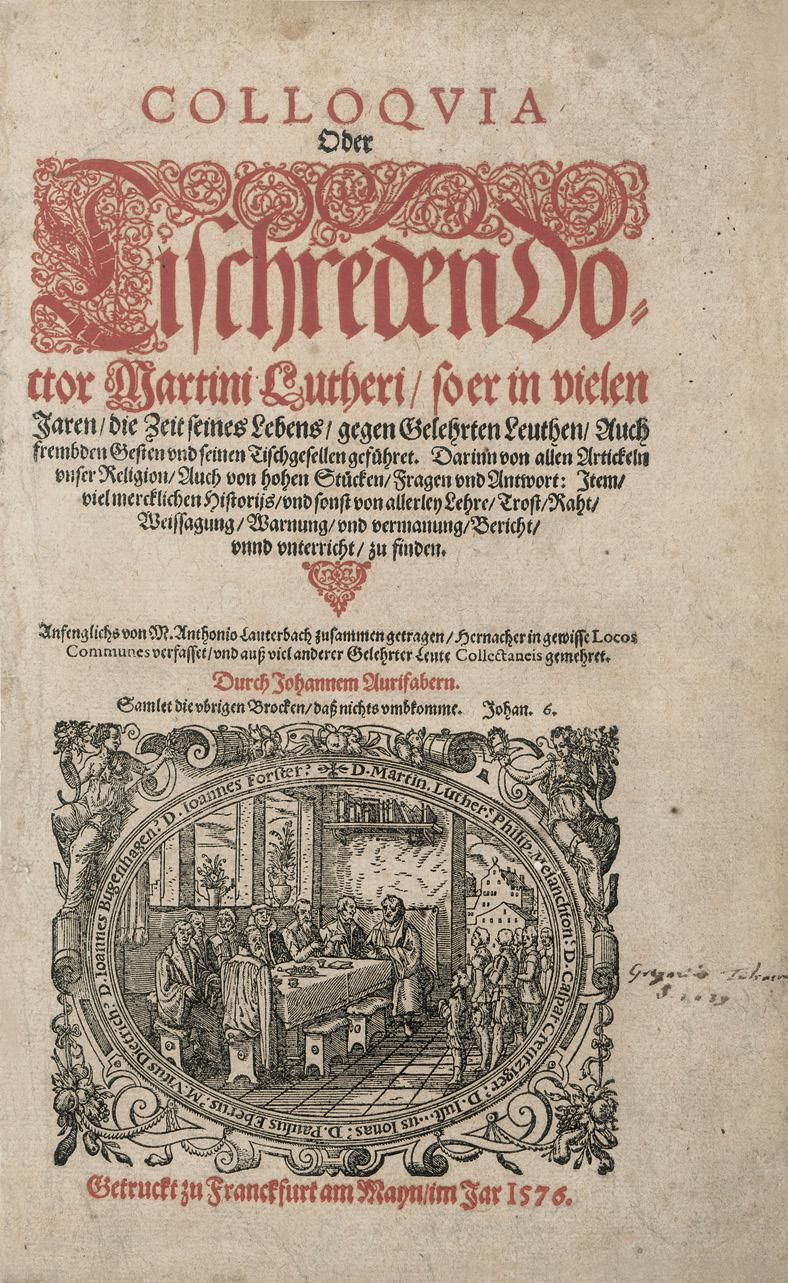 COLLOQVIA
Oder
Tischreden Do-
ctor Martini Lutheri/ so er in vielen
Jaren/ die Zeit seines Lebens/ gegen Gelehrten Leuthen/ Auch
frembden Gesten vnd seinen Tischgesellen geführet. Darinn von allen Artickeln
vnser Religion/ Auch von hohen Stücken/ Fragen vnd Antwort: Item/
viel mercklichen Historijs/ vnd sonst von allerley Lehre/ Trost/ Raht/
Weissagung/ Warnung/ vnd vermanung/ Bericht/
vnnd vnterricht/ zu finden.
Anfenglichs von M. Anthonio Lauterbach zusammen getragen/ Hernacher in gewisse Locos
Communes verfasset/ vnd auß viel anderer Gelehrter Leute Collectaneis gemehret.
Durch Johannem Aurifabern.
Samlet die vbrigen Brocken/ daß nichts vmbkomme. Johan. 6.
D. Martin. Luther: Philip. Melanchton: D. Caspar Creutziger: D. Just...us Ionas: D. Paulus Eberus: M. Vitus Dietrich: D. Ioannes Bugenhagen: D. Ioannes Forster:
Getruckt zu Franckfurt am Mayn/ im Jar 1576.